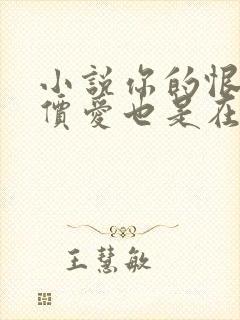 小說你的恨
價愛也是在
王慧敏